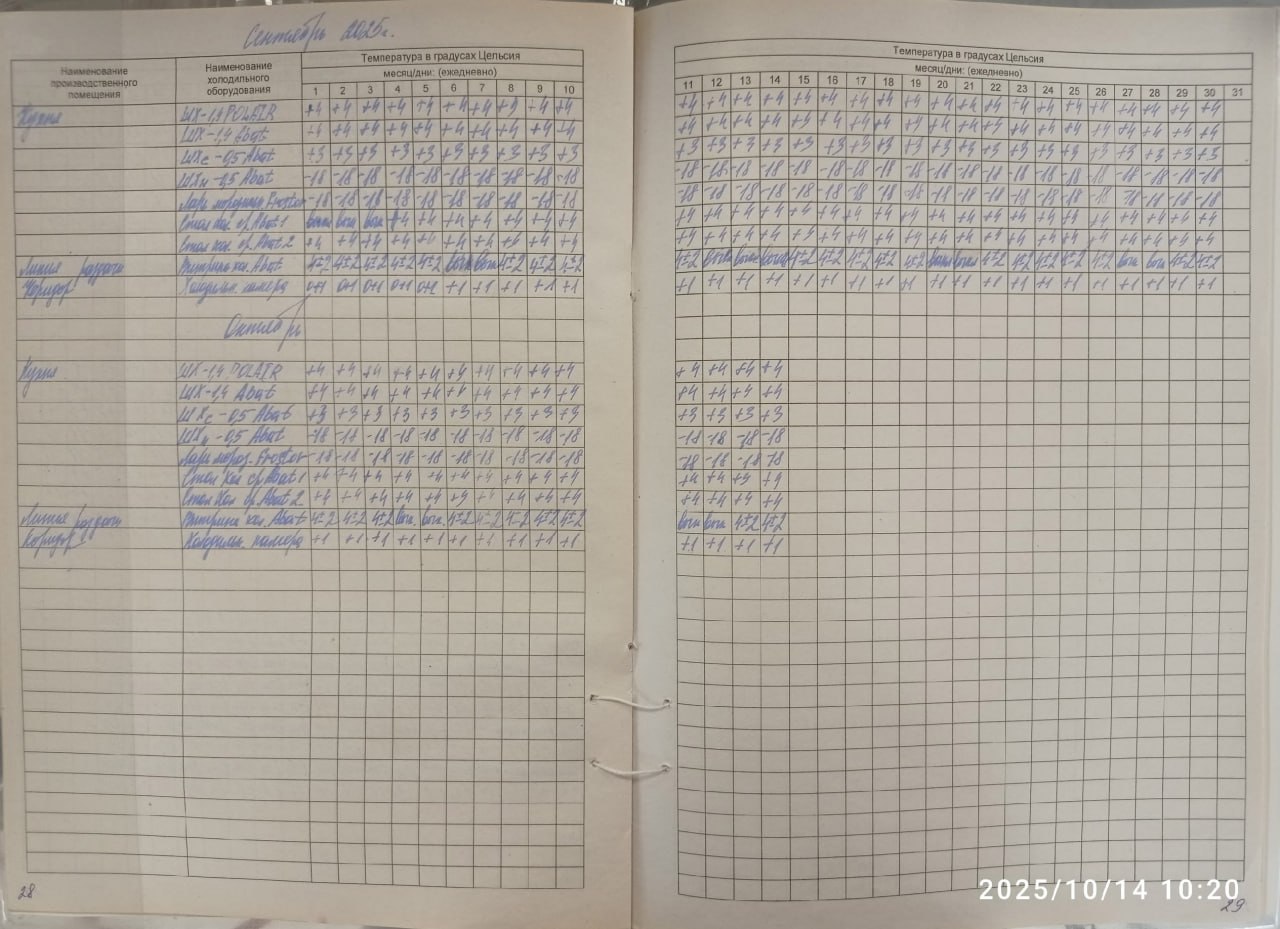 Сентябрь 2025г.
Наименование производственного помещения
Наименование холодильного оборудования
Температура в градусах Цельсия
месяц/дни: (ежедневно)
1 2 3 4 5 6 7 8 9 10
Температура в градусах Цельсия
месяц/дни: (ежедневно)
11 12 13 14 15 16 17 18 19 20 21 22 23 24 25 26 27 28 29 30 31
Кухня ШХ-1,4 POLAIR +4 +4 +4 +4 +4 +4 +4 +4 +4 +4 +4 +4 +4 +4 +4 +4 +4 +4 +4 +4 +4 +4 +4 +4 +4 +4 +4 +4 +4 +4
ШХ-1,4 Abat +4 +4 +4 +4 +4 +4 +4 +4 +4 +4 +4 +4 +4 +4 +4 +4 +4 +4 +4 +4 +4 +4 +4 +4 +4 +4 +4 +4 +4 +4
ШХс-0,5 Abat +3 +3 +3 +3 +3 +3 +3 +3 +3 +3 +3 +3 +3 +3 +3 +3 +3 +3 +3 +3 +3 +3 +3 +3 +3 +3 +3 +3 +3 +3
ШХн-0,5 Abat -18 -18 -18 -18 -18 -18 -18 -18 -18 -18 -18 -18 -18 -18 -18 -18 -18 -18 -18 -18 -18 -18 -18 -18 -18 -18 -18 -18 -18 -18
Ларь Frostor -18 -18 -18 -18 -18 -18 -18 -18 -18 -18 -18 -18 -18 -18 -18 -18 -18 -18 -18 -18 -18 -18 -18 -18 -18 -18 -18 -18 -18 -18
Стол хол. ср. Abat 1 +4 +4 +4 +4 +4 +4 +4 +4 +4 +4 +4 +4 +4 +4 +4 +4 +4 +4 +4 +4 +4 +4 +4 +4 +4 +4 +4
Стол хол. ср. Abat 2 +4 +4 +4 +4 +4 +4 +4 +4 +4 +4 +4 +4 +4 +4 +4 +4 +4 +4 +4 +4 +4 +4 +4 +4 +4 +4 +4 +4 +4 +4
Линия раздачи Витрина хол. Abat 4±2 4±2 4±2 4±2 4±2 4±2 4±2 4±2 4±2 4±2 4±2 4±2 4±2 4±2 4±2 4±2 4±2 4±2 4±2 4±2 4±2
Коридор Холодильн. камера 0+1 0+1 0+1 0+1 0+1 +1 +1 +1 +1 +1 +1 +1 +1 +1 +1 +1 +1 +1 +1 +1 +1 +1 +1 +1 +1 +1 +1 +1 +1 +1
Октябрь
Кухня ШХ-1,4 POLAIR +4 +4 +4 +4 +4 +4 +4 +4 +4 +4 +4 +4 +4 +4
ШХ-1,4 Abat +4 +4 +4 +4 +4 +4 +4 +4 +4 +4 +4 +4 +4 +4
ШХс-0,5 Abat +3 +3 +3 +3 +3 +3 +3 +3 +3 +3 +3 +3 +3 +3
ШХн-0,5 Abat -18 -18 -18 -18 -18 -18 -18 -18 -18 -18 -18 -18 -18 -18
Ларь мороз. Frostor -18 -18 -18 -18 -18 -18 -18 -18 -18 -18 -18 -18 -18 -18
Стол хол ср. Abat 1 +4 +4 +4 +4 +4 +4 +4 +4 +4 +4 +4 +4 +4 +4
Стол хол ср. Abat 2 +4 +4 +4 +4 +4 +4 +4 +4 +4 +4 +4 +4 +4 +4
Линия раздачи Витрина хол. Abat 4±2 4±2 4±2 4±2 4±2 4±2 4±2 4±2 4±2 4±2
Коридор Холодильн. камера +1 +1 +1 +1 +1 +1 +1 +1 +1 +1 +1 +1 +1 +1
28
2025/10/14 10:20
29